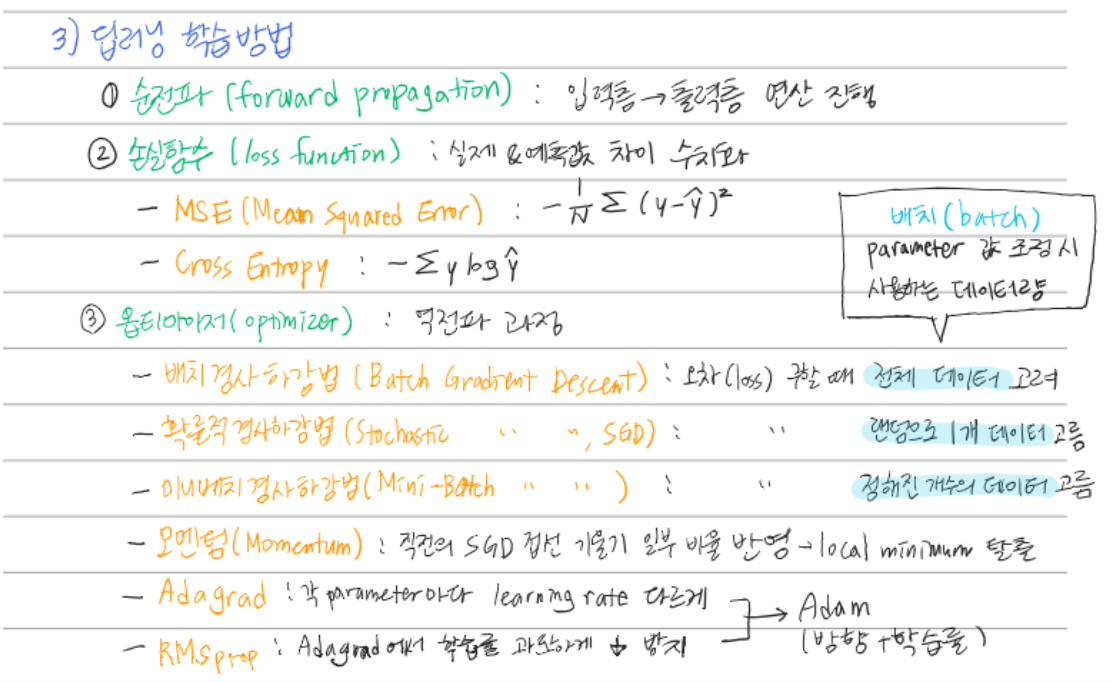 3) 딥러닝 학습방법
① 순전파 (forward propagation) : 입력층→출력층 연산 진행
② 손실함수 (loss function) : 실제 & 예측값 차이 수치화
- MSE (Mean Squared Error) : -1/N Σ (y-ŷ)²
- Cross Entropy : -Σ y log ŷ
배치 (batch)
parameter 값 조정 시
사용하는 데이터량
③ 옵티마이저 (optimizer) : 역전파 과정
- 배치경사하강법 (Batch Gradient Descent) : 오차(loss) 구할 때 전체 데이터 고려
- 확률적경사하강법 (Stochastic " ", SGD) : " 랜덤으로 1개 데이터 고름
- 미니배치경사하강법 (Mini-Batch " " ) : " 정해진 개수의 데이터 고름
- 모멘텀 (Momentum) : 직전의 SGD 접선 기울기 일부 비율 반영→local minimum 탈출
- Adagrad : 각 parameter마다 learning rate 다르게
- RMSprop : Adagrad에서 학습률 과도하게 ↓ 방지
→ Adam
(방향+학습률)